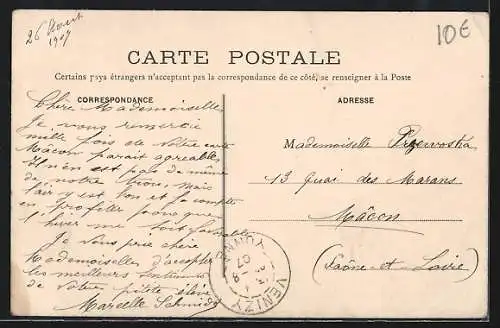 26 Août
1907
10€
CARTE POSTALE
Certains pays étrangers n'acceptant pas la correspondance de ce côté, se renseigner à la Poste
CORRESPONDANCE
ADRESSE
Chère Mademoiselle
Je vous remercie
mille fois de votre carte
Mâcon parait agréable,
Il n'en est pas de même
de notre trou, mais
l'air y est bon et je compte
en profiter pour que
l'hiver me soit favorable
Je vous prie chère
Mademoiselle d'accepter
les meilleurs
de votre petite élève
Marcelle
Mademoiselle
13 Quai des Marans
Mâcon
(Saône-et-Loire)
VENIZY
YONNE
07